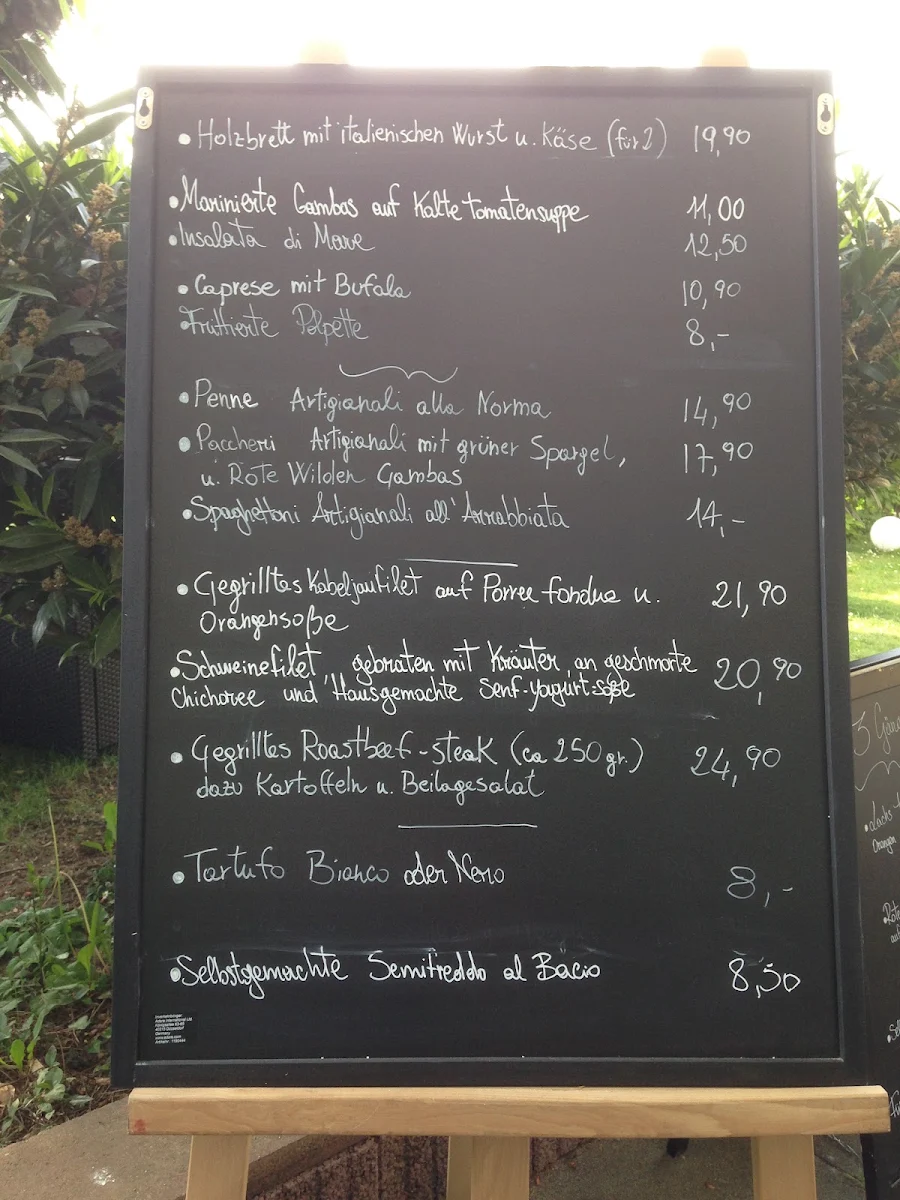 • Holzbrett mit italienischen Wurst u. Käse (für 2) 19,90
• Marinierte Gambas auf Kalte tomatensuppe 11,00
• Insalata di Mare 12,50
• Caprese mit Bufala 10,90
• Fruttierte Polpette 8,-
• Penne Artigianali alla Norma 14,90
• Paccheri Artigianali mit grüner Spargel, 17,90
u. Rote Wilden Gambas
• Spaghettoni Artigianali all'Arrabbiata 14,-
• Gegrilltes Kabeljaufilet auf Porree fondue u. 21,90
Orangensoße
• Schweinefilet, gebraten mit Kräuter, an geschmorte 20,90
Chichoree und Hausgemachte Senf-Yogurt-soße
• Gegrilltes Roastbeef-steak (ca 250 gr.) 24,90
dazu Kartoffeln u. Beilagesalat
• Tartufo Bianco oder Nero 8,-
• Selbstgemachte Semifreddo al Bacio 8,50
3 Gäng
• Lachs
Orangen